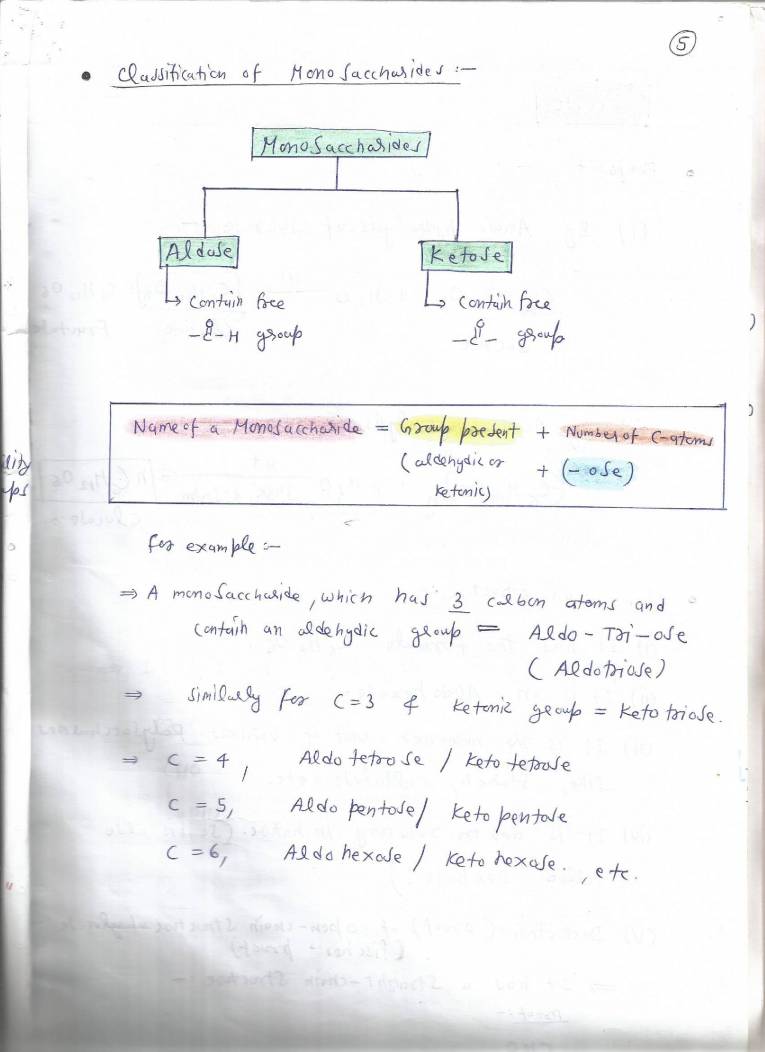 5
• Classification of Monosaccharides :—
Monosaccharides
Aldose Ketose
↳ Contain free ↳ Contain free
O O
-C-H group -C- group
Name of a Monosaccharide = Group present + Number of C-atoms
(aldehydic or + (-ose)
ketonic)
lity
ps
for example :-
⇒ A monosaccharide, which has 3 carbon atoms and
contain an aldehydic group = Aldo - Tri - ose
(Aldotriose)
⇒ Similarly for C = 3 & ketonic group = Keto triose.
⇒ C = 4, Aldo tetrose / Keto tetrose
C = 5, Aldo pentose / Keto pentose
C = 6, Aldo hexose / Keto hexose., etc.